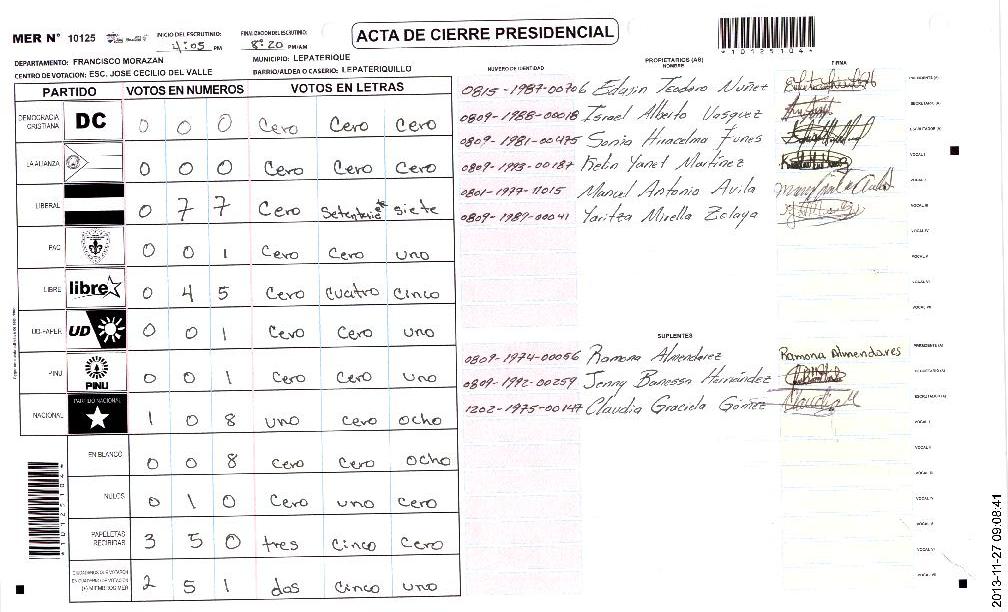 MER N° 10125
INICIO DEL ESCRUTINIO: 4:05 PM
FINALIZACION DEL ESCRUTINIO: 8:20 PM/AM
ACTA DE CIERRE PRESIDENCIAL
*10125104*
DEPARTAMENTO: FRANCISCO MORAZAN
MUNICIPIO: LEPATERIQUE
CENTRO DE VOTACION: ESC. JOSE CECILIO DEL VALLE
BARRIO/ALDEA O CASERIO: LEPATERIQUILLO
PARTIDO VOTOS EN NUMEROS VOTOS EN LETRAS
DEMOCRACIA CRISTIANA DC 0 0 0 Cero Cero Cero
LA ALIANZA 0 0 0 Cero Cero Cero
LIBERAL 0 7 7 Cero Setentaio siete
PAC 0 0 1 Cero Cero uno
LIBRE libre 0 4 5 Cero cuatro cinco
UD-FAPER UD 0 0 1 Cero Cero uno
PINU PINU 0 0 1 Cero Cero uno
NACIONAL PARTIDO NACIONAL 1 0 8 uno cero ocho
EN BLANCO 0 0 8 Cero Cero ocho
NULOS 0 1 0 Cero uno Cero
PAPELETAS RECIBIDAS 3 5 0 tres cinco cero
CIUDADANOS QUE VOTARON EN CUADERNO DE VOTACION (+) MIEMBROS MER 2 5 1 dos cinco uno
*10125104*
PROPIETARIOS (AS)
NUMERO DE IDENTIDAD NOMBRE FIRMA
0815-1987-00706 Eduin Teodoro Nuñez PRESIDENTE (A)
0809-1988-00018 Israel Alberto Vasquez SECRETARIO (A)
0809-1981-00475 Sonia Funes ESCRUTADOR (A)
0809-1993-00187 Kelin Yanet Martinez VOCAL I
0801-1977-11015 Manuel Antonio Avila VOCAL II
0809-1989-00041 Yaritza Mirella Zelaya VOCAL III
VOCAL IV
VOCAL V
VOCAL VI
VOCAL VII
SUPLENTES
0809-1974-00056 Ramona Almendarez Ramona Almendares PRESIDENTE (A)
0809-1992-00259 Jenny Banessa Hernández SECRETARIO (A)
1202-1975-00147 Claudia Graciela Gómez ESCRUTADOR (A)
VOCAL I
VOCAL II
VOCAL III
VOCAL IV
VOCAL V
VOCAL VI
VOCAL VII
2013-11-27 09:08:41